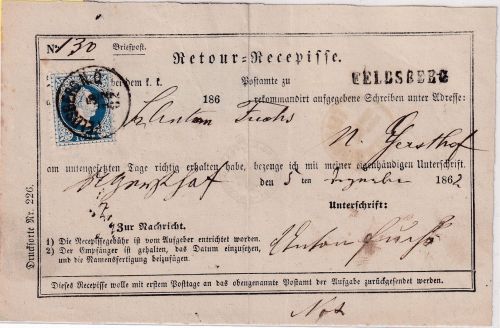 No. 130 Briefpost.
Retour-Recepisse.
bei dem k. k. Postamte zu FELDSBERG
186 rekommandirt aufgegebene Schreiben unter Adresse:
Anton Fuchs
N. Gersthof
am untengesetzten Tage richtig erhalten habe, bezeuge ich mit meiner eigenhändigen Unterschrift.
den 5 ten Dezember 186
Unterschrift:
Anton Fuchs
Zur Nachricht.
1) Die Recepissegebühr ist vom Aufgeber entrichtet worden.
2) Der Empfänger ist gehalten, das Datum einzusetzen,
und die Namensfertigung beizufügen.
Dieses Recepisse wolle mit erstem Posttage an das obengenannte Postamt der Aufgabe zurückgesendet werden.
Drucksorte Nr. 226.